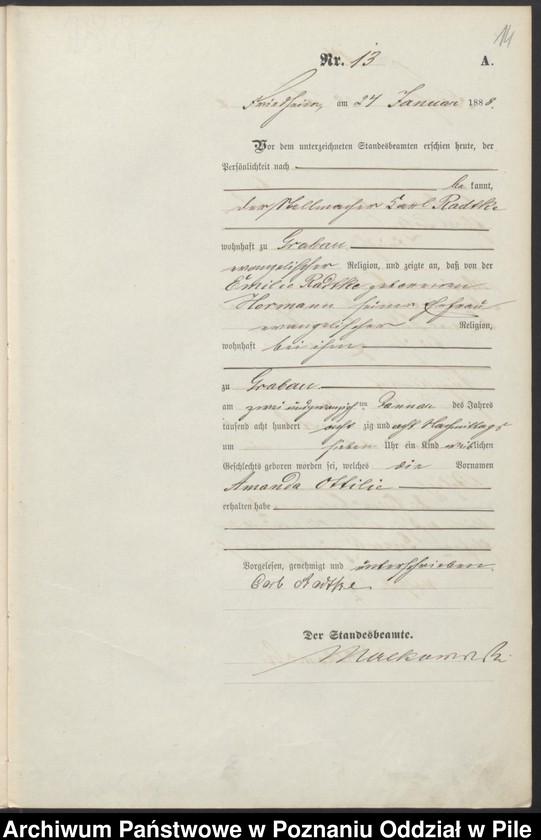 14
Nr. 13 A.
Friedheim, am 24 Januar 1888.
Vor dem unterzeichneten Standesbeamten erschien heute, der
Persönlichkeit nach
be kannt,
der Stellmacher Carl Radtke
wohnhaft zu Grabau
evangelischer Religion, und zeigte an, daß von der
Emilie Radtke geborenen
Hormann seiner Ehefrau
evangelischer Religion,
wohnhaft bei ihm
zu Grabau
am zwei und zwanzig ten Januar des Jahres
tausend acht hundert acht zig und acht Nachmittags
um sieben Uhr ein Kind weiblichen
Geschlechts geboren worden sei, welches die Vornamen
Amanda Ottilie
erhalten habe
Vorgelesen, genehmigt und unterschrieben
Carl Radtke
Der Standesbeamte.
Archiwum Państwowe w Poznaniu Oddział w Pile